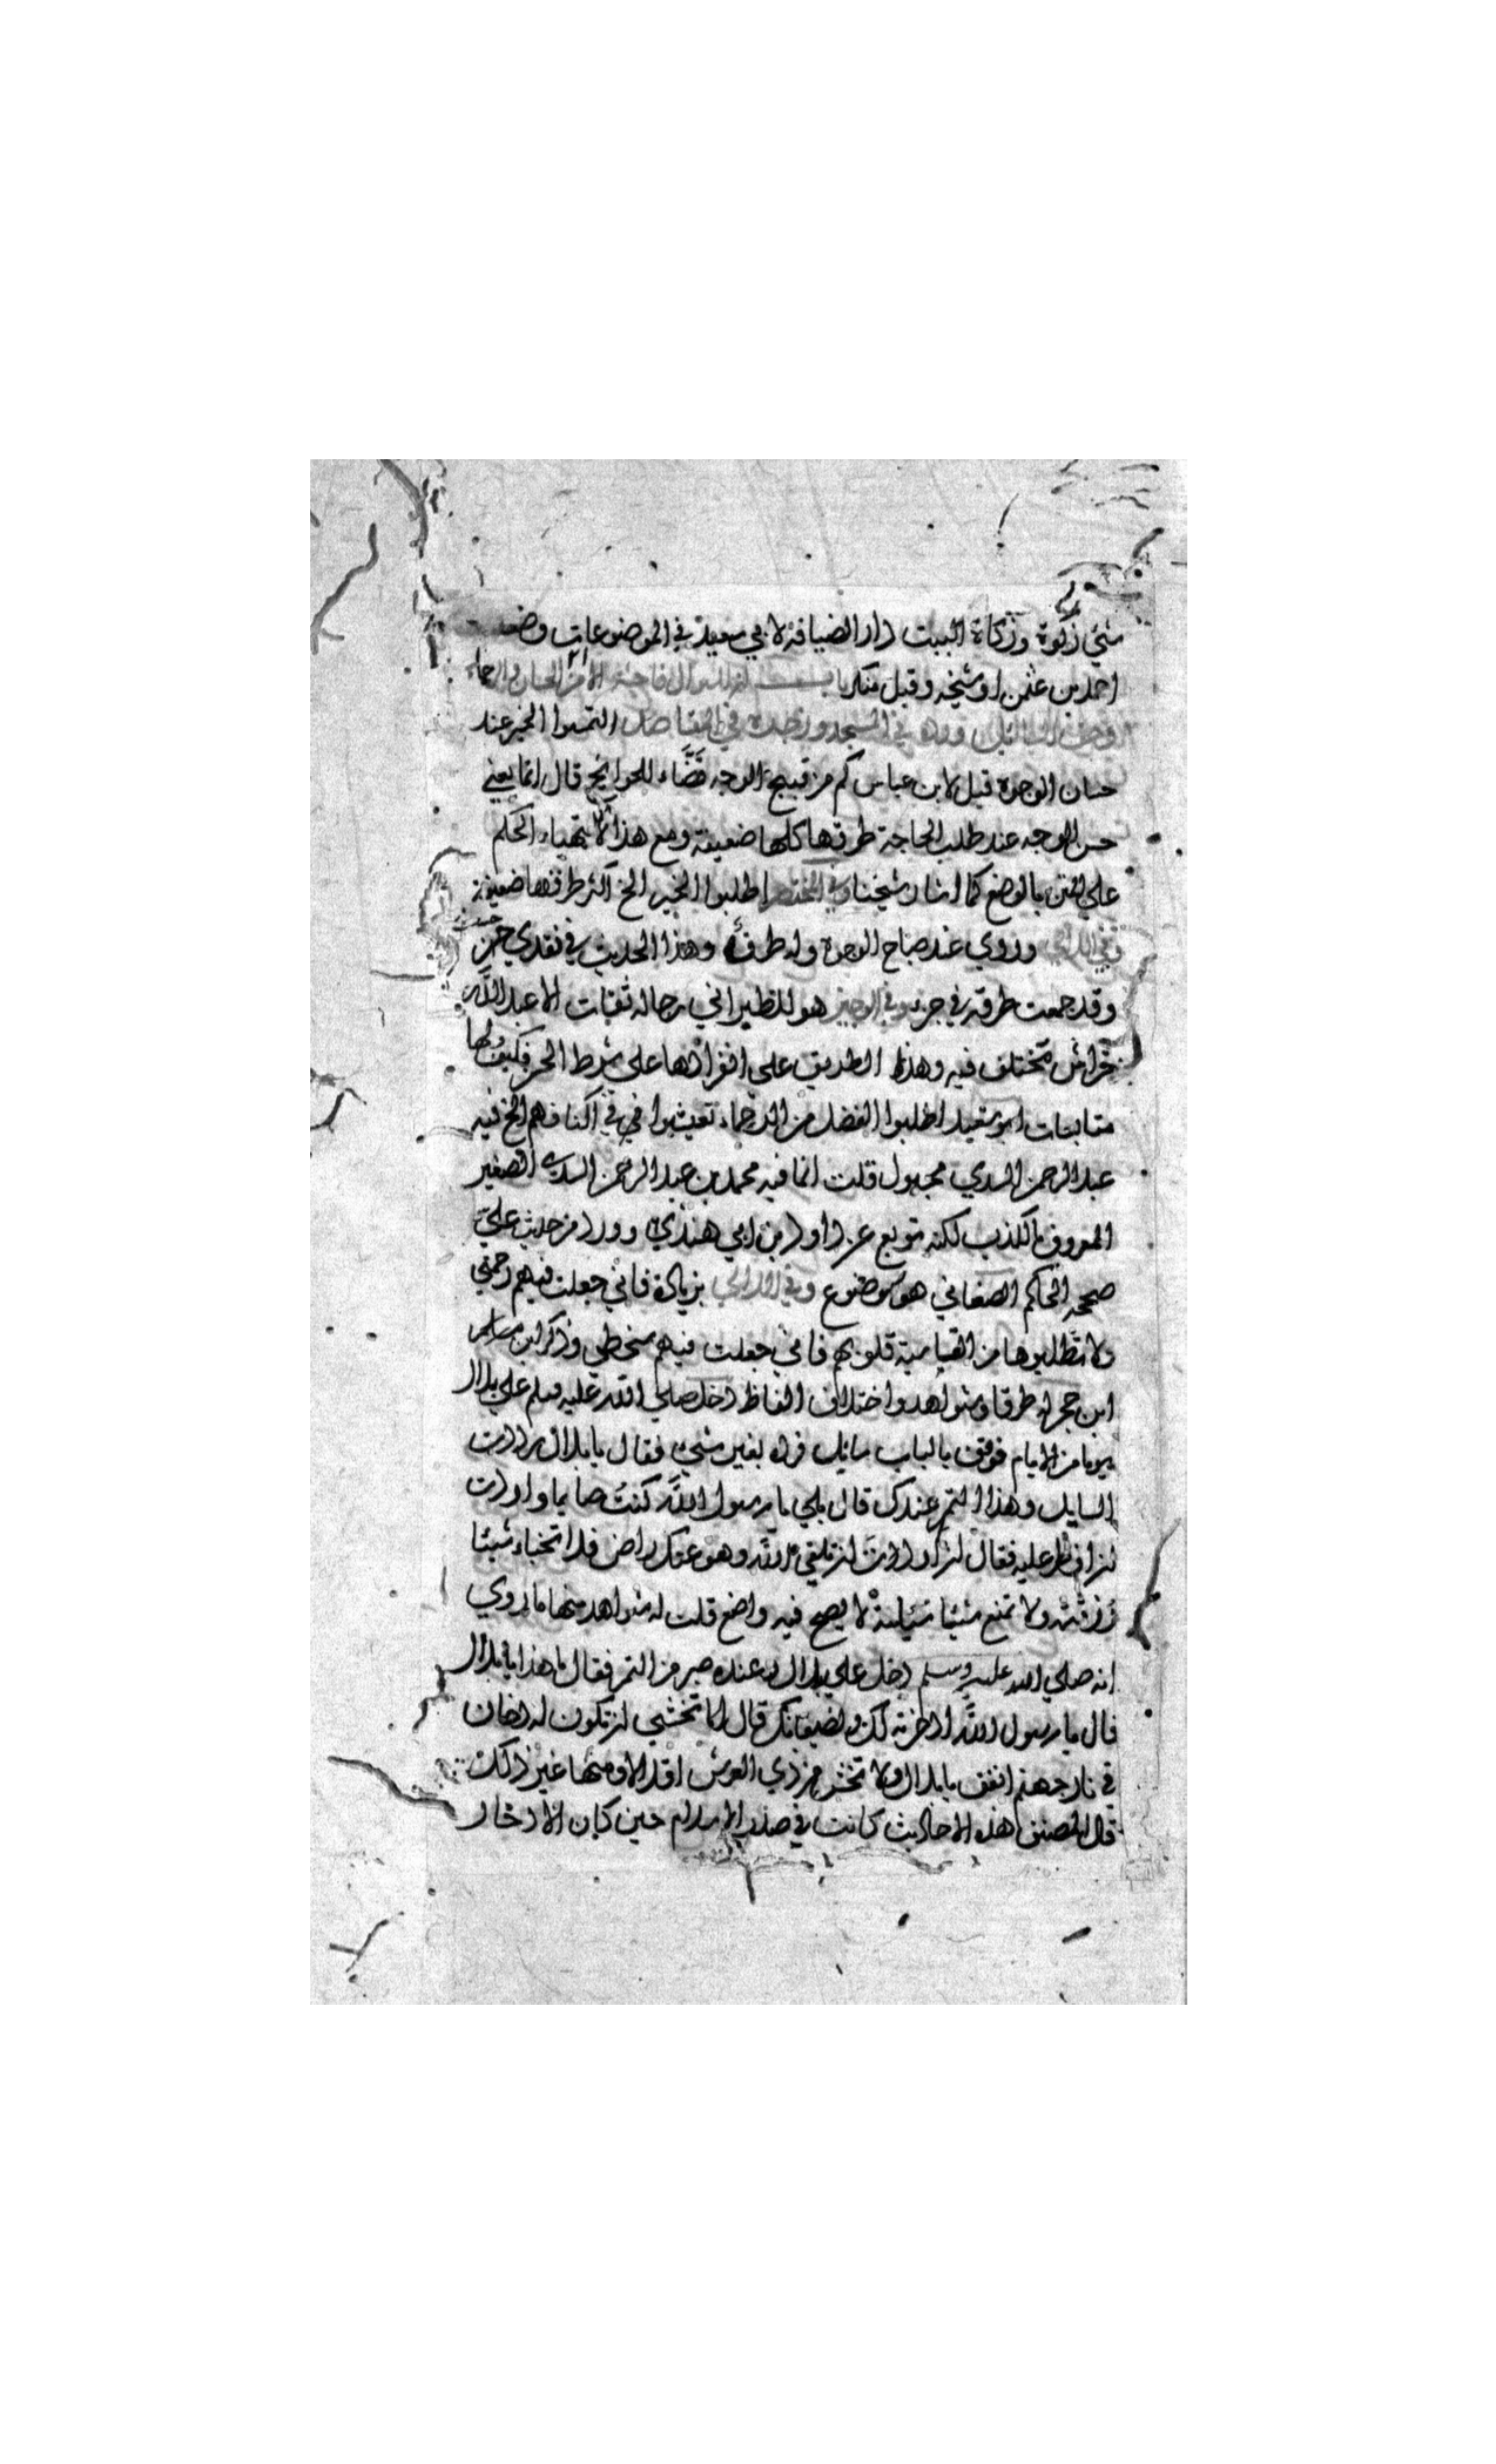 شيئ زكوة وزكاة البيت دار الضيافة لابي سعيد في الموضوعات وضعه
احمد بن عثمن او شيخه وقيل منكر باب السوال لا من الحسان والرحماء
السايل ورده في المسجد ورخصة في المقاصد التمسوا الخير عند
حسان الوجوه قيل لابن عباس كم من قبيح الوجه قضاء للحوائج قال انما يعني
حسن الوجه عند طلب الحاجة طرقها كلها ضعيفة ومع هذا لا يتهياء الحكم
على المتن بالوضع كما اشار شيخنا وفي المختصر اطلبوا الخير الخ اكثر طرقها ضعيفة
وفي اللالي وروي عند صباح الوجوه وله طرق وهذا الحديث في نقدي حسن
وقد جمعت طرقه في جزء وفي الوجيز هو للطبراني رجاله ثقات الا عبد الله
خراش مختلف فيه وهذا الطريق على افرادها على شرط الحسن فكيف ولها
متابعات ابو سعيد اطلبوا الفضل من الرحماء تعيشوا في اكنافهم الخ فيه
عبد الرحمن السدي مجهول قلت انما فيه محمد بن عبد الرحمن السدي الصغير
المعروف بالكذب لكنه توبع عن داود بن ابي هند وورد من حديث علي
صححه الحاكم الصغاني هو موضوع وفي اللالي بزيادة فاني جعلت فيهم رحمتي
ولا تطلبوها من القاسية قلوبهم فاني جعلت فيهم سخطي وذكر
ابن حجر له طرقا وشواهد واختلاف الفاظ دخل صلى الله عليه وسلم على بلال
يوما من الايام فوقف بالباب سايل فرده بغير شيئ فقال يا بلال رددت
السايل وهذا التمر عندك قال بلى يا رسول الله كنت صايما واردت
ان افطر عليه فقال ان اردت ان تلقى الله وهو عنك راض فلا تخباء شيئا
رزقته ولا تمنع شيئا سيلته لا يصح فيه واضع قلت له شواهد منها ما روي
انه صلى الله عليه وسلم دخل على بلال وعنده صبر من التمر فقال ما هذا يا بلال
قال يا رسول الله ادخرته لك ولضيفانك قال اما تخشى ان تكون له دخان
في نار جهنم انفق يا بلال ولا تخش من ذي العرش اقلالا ومنها غير ذلك
قال المصنف هذه الاحاديث كانت في صدر الاسلام حين كان الادخار